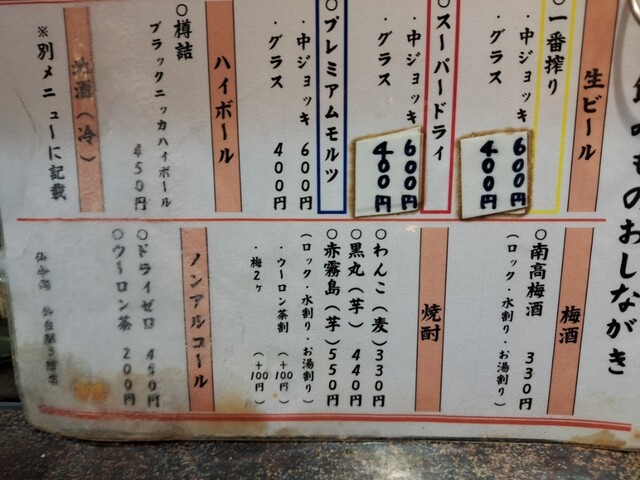 飲みものおしながき
生ビール
○一番搾り
・中ジョッキ 600円
・グラス 400円
○スーパードライ
・中ジョッキ 600円
・グラス 400円
○プレミアムモルツ
・中ジョッキ 600円
・グラス 400円
ハイボール
○樽詰
ブラックニッカハイボール
450円
地酒(冷)
※別メニューに記載
梅酒
○南高梅酒 330円
(ロック・水割り・お湯割り)
焼酎
○わんこ(麦)330円
○黒丸(芋)440円
○赤霧島(芋)550円
(ロック・水割り・お湯割り)
・ウーロン茶割(+100円)
・梅2ヶ(+100円)
ノンアルコール
○ドライゼロ 450円
○ウーロン茶 200円
仙台駅3階店